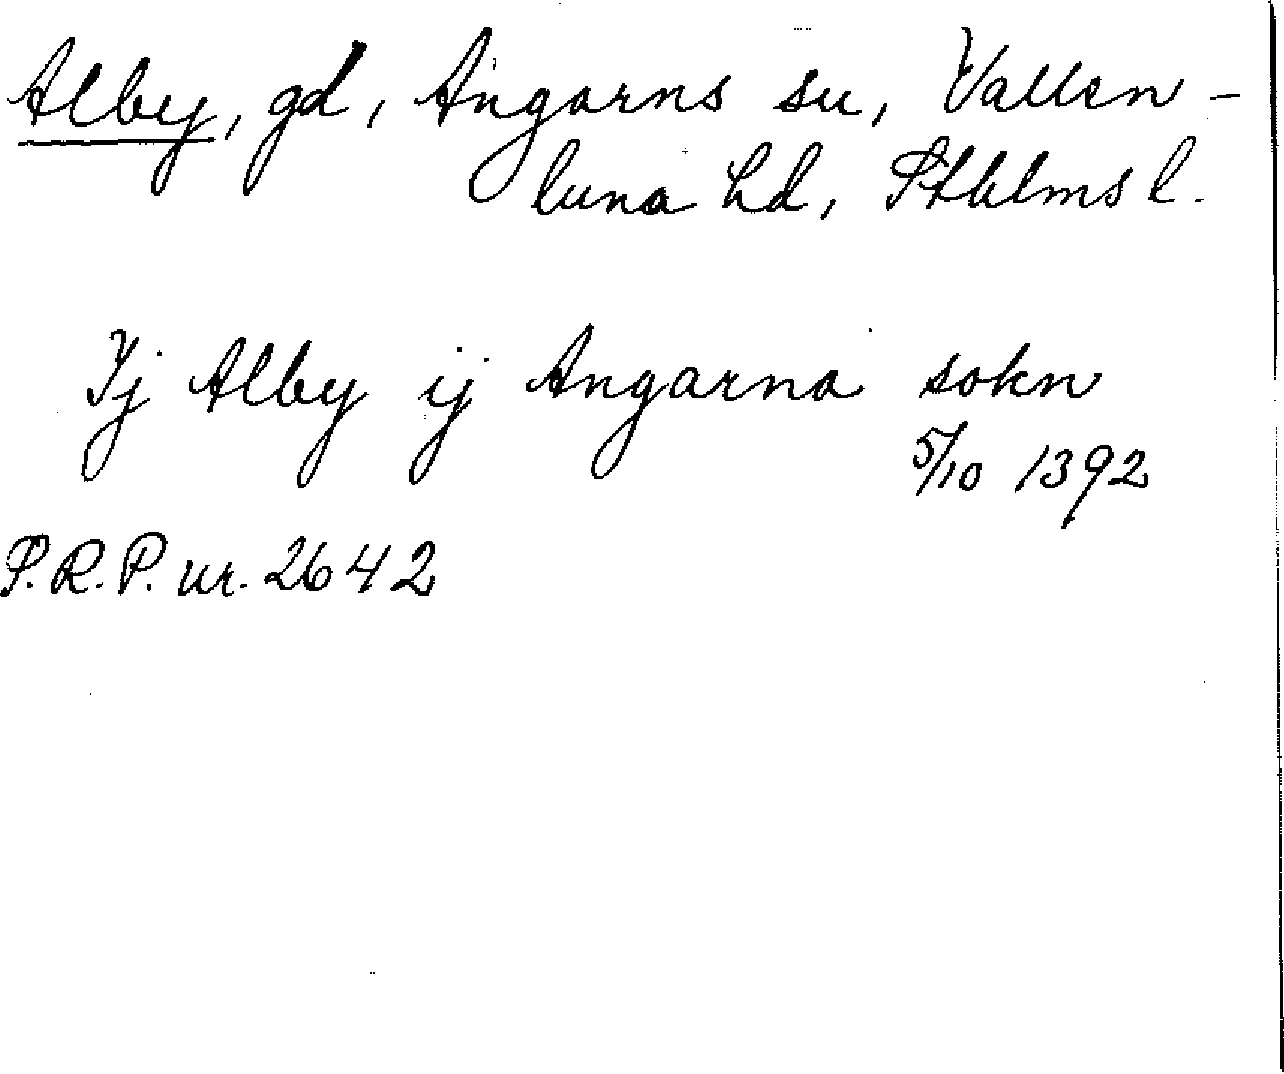 Alby, gd, Angarns sn, Vallen-
tuna hd, Sthlms l.
Ij Alby ij Angarna sokn
5/10 1392
S.R.P. nr. 2642